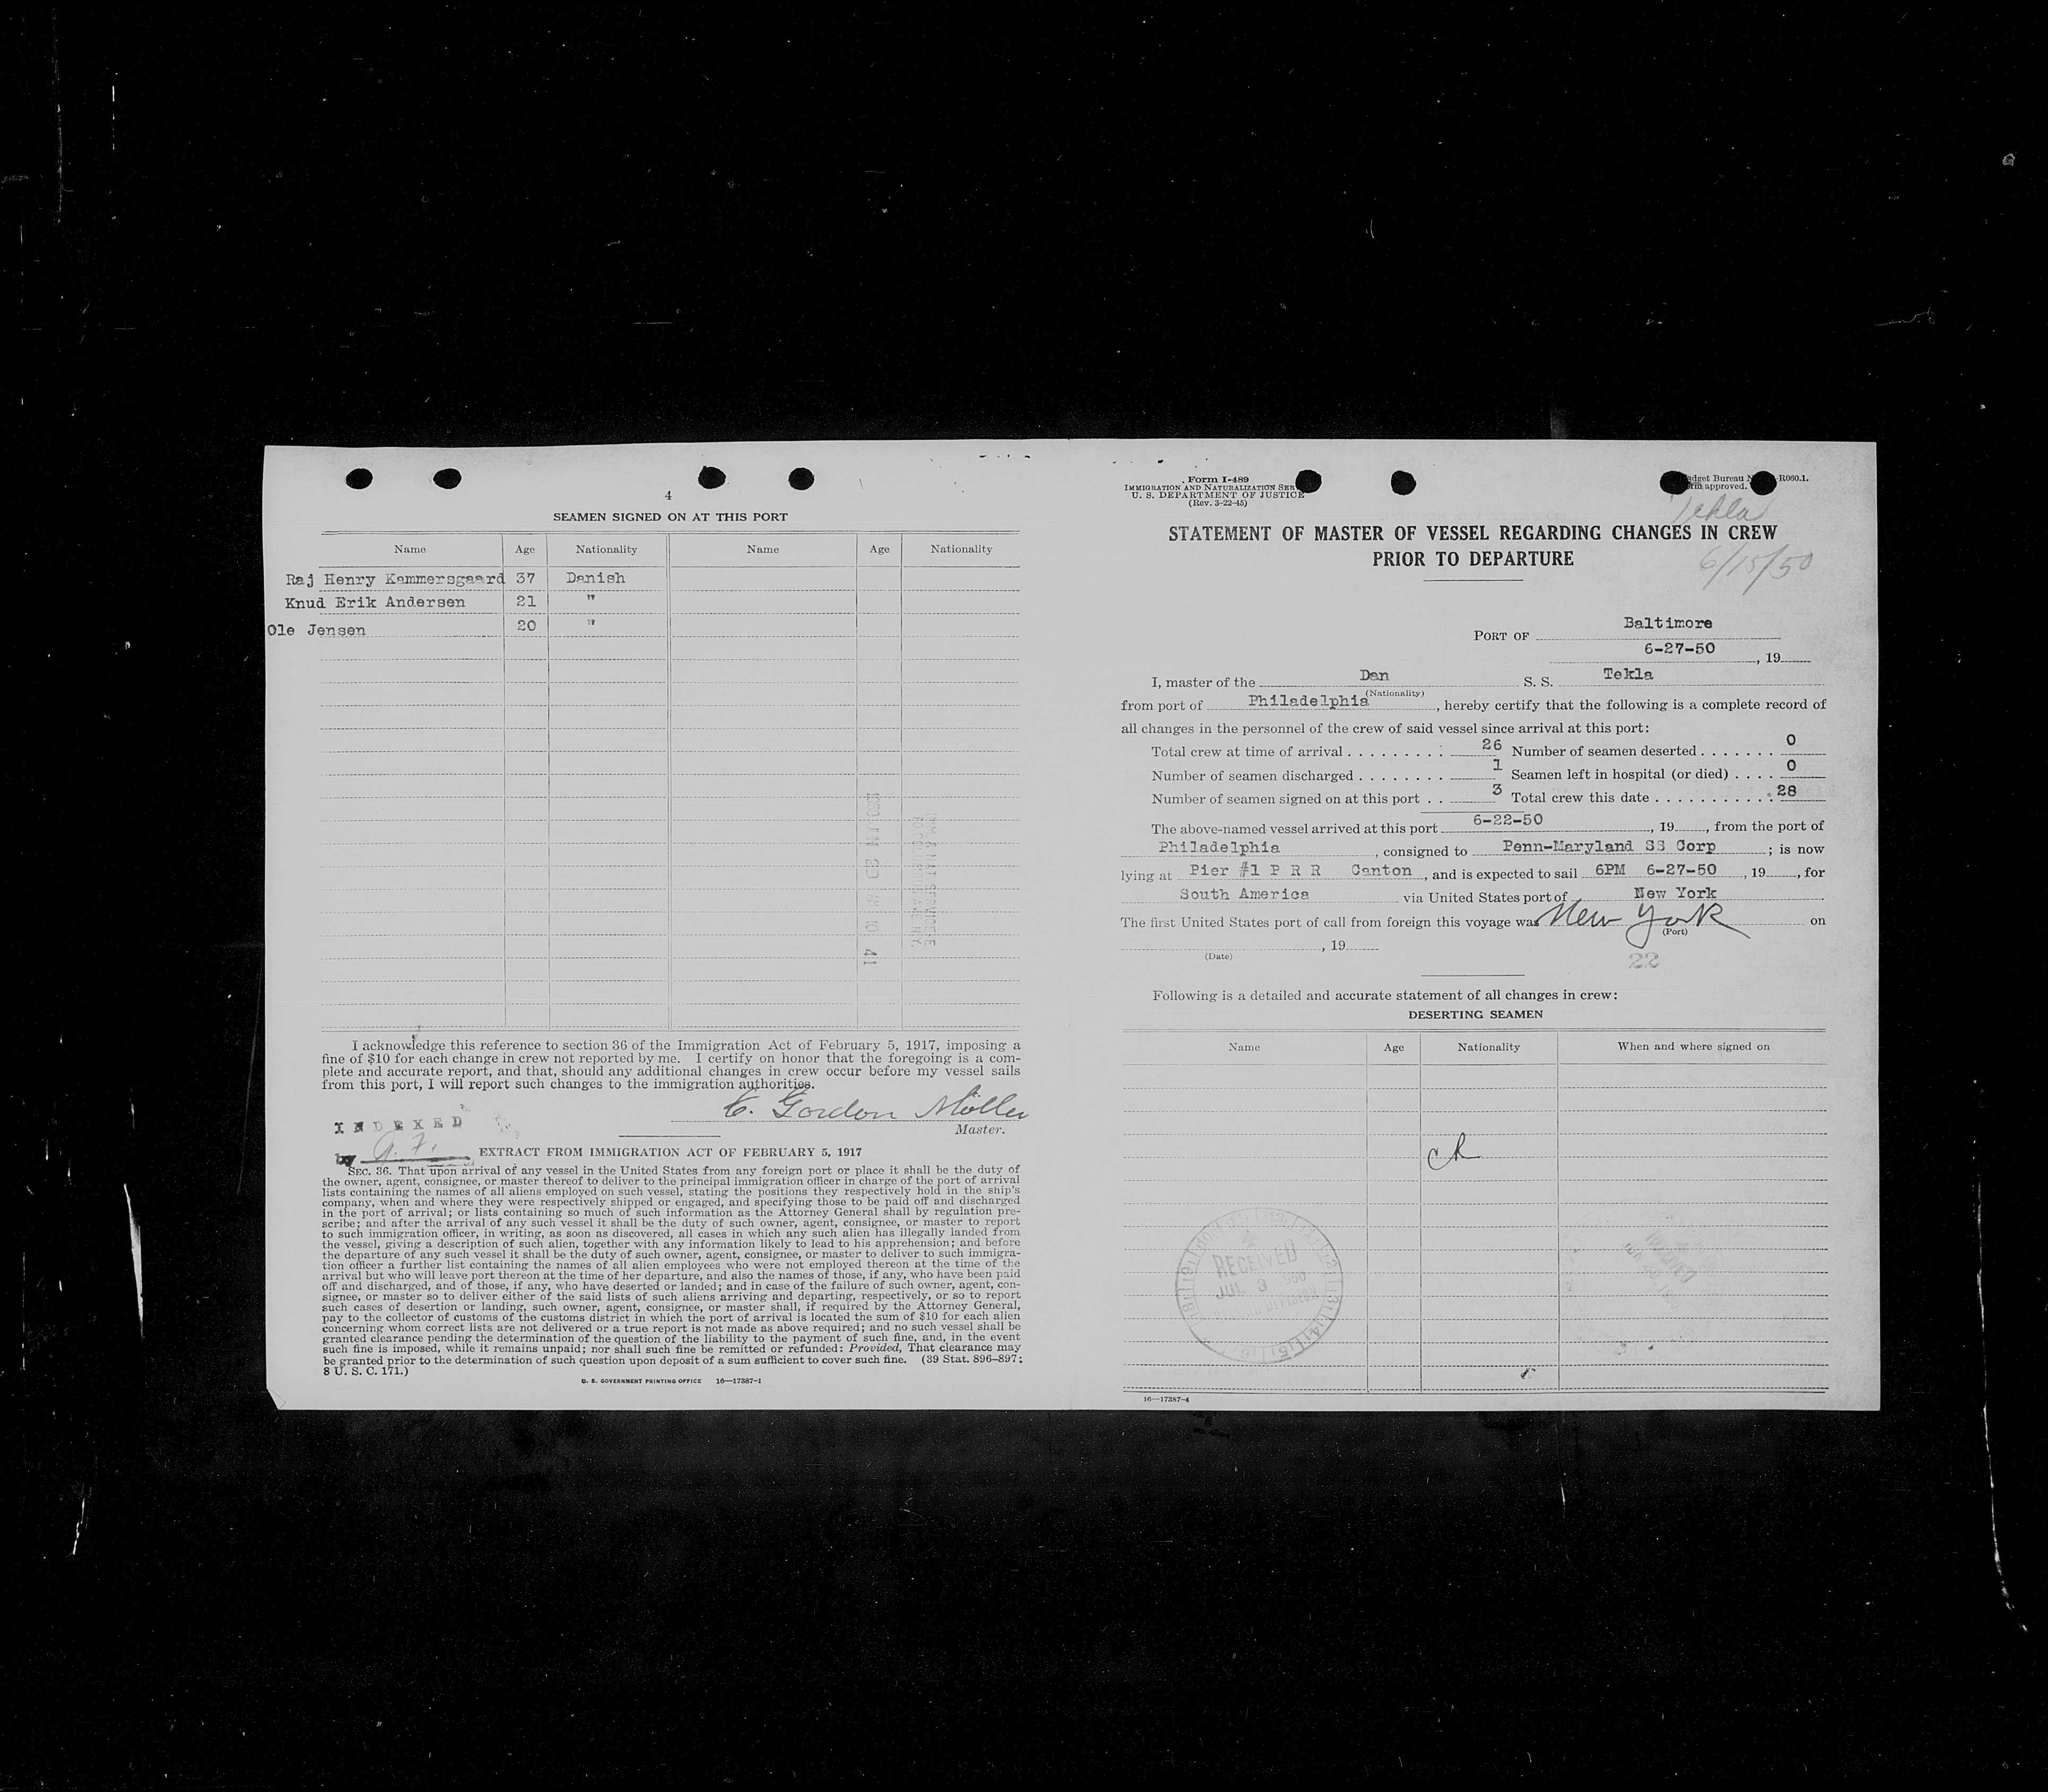 4
SEAMEN SIGNED ON AT THIS PORT
Name Age Nationality Name Age Nationality
Raj Henry Kammersgaard 37 Danish
Knud Erik Andersen 21 "
Ole Jensen 20 "
I acknowledge this reference to section 36 of the Immigration Act of February 5, 1917, imposing a
fine of $10 for each change in crew not reported by me. I certify on honor that the foregoing is a com-
plete and accurate report, and that, should any additional changes in crew occur before my vessel sails
from this port, I will report such changes to the immigration authorities.
Gordon Möller
Master.
INDEXED
by
EXTRACT FROM IMMIGRATION ACT OF FEBRUARY 5, 1917
SEC. 36. That upon arrival of any vessel in the United States from any foreign port or place it shall be the duty of
the owner, agent, consignee, or master thereof to deliver to the principal immigration officer in charge of the port of arrival
lists containing the names of all aliens employed on such vessel, stating the positions they respectively hold in the ship's
company, when and where they were respectively shipped or engaged, and specifying those to be paid off and discharged
in the port of arrival; or lists containing so much of such information as the Attorney General shall by regulation pre-
scribe; and after the arrival of any such vessel it shall be the duty of such owner, agent, consignee, or master to report
to such immigration officer, in writing, as soon as discovered, all cases in which any such alien has illegally landed from
the vessel, giving a description of such alien, together with any information likely to lead to his apprehension; and before
the departure of any such vessel it shall be the duty of such owner, agent, consignee, or master to deliver to such immigra-
tion officer a further list containing the names of all alien employees who were not employed thereon at the time of the
arrival but who will leave port thereon at the time of her departure, and also the names of those, if any, who have been paid
off and discharged, and of those, if any, who have deserted or landed; and in case of the failure of such owner, agent, con-
signee, or master so to deliver either of the said lists of such aliens arriving and departing, respectively, or so to report
such cases of desertion or landing, such owner, agent, consignee, or master shall, if required by the Attorney General,
pay to the collector of customs of the customs district in which the port of arrival is located the sum of $10 for each alien
concerning whom correct lists are not delivered or a true report is not made as above required; and no such vessel shall be
granted clearance pending the determination of the question of the liability to the payment of such fine, and, in the event
such fine is imposed, while it remains unpaid; nor shall such fine be remitted or refunded: Provided, That clearance may
be granted prior to the determination of such question upon deposit of a sum sufficient to cover such fine. (39 Stat. 896-897;
8 U. S. C. 171.)
U. S. GOVERNMENT PRINTING OFFICE 16—17387-1
Form I-489
IMMIGRATION AND NATURALIZATION SER
U. S. DEPARTMENT OF JUSTICE
(Rev. 3-22-45)
dget Bureau N -R060.1.
rm approved.
Tekla
STATEMENT OF MASTER OF VESSEL REGARDING CHANGES IN CREW
PRIOR TO DEPARTURE
6/15/50
PORT OF Baltimore
6-27-50, 19
I, master of the Dan S. S. Tekla
(Nationality)
from port of Philadelphia, hereby certify that the following is a complete record of
all changes in the personnel of the crew of said vessel since arrival at this port:
Total crew at time of arrival . . . . . . . . . 26 Number of seamen deserted . . . . . . . 0
Number of seamen discharged . . . . . . . . 1 Seamen left in hospital (or died) . . . . 0
Number of seamen signed on at this port . . 3 Total crew this date . . . . . . . . . . . 28
The above-named vessel arrived at this port 6-22-50, 19, from the port of
Philadelphia, consigned to Penn-Maryland SS Corp; is now
lying at Pier #1 P R R Canton, and is expected to sail 6PM 6-27-50, 19, for
South America via United States port of New York
The first United States port of call from foreign this voyage was New York on
(Port)
, 19
(Date)
22
Following is a detailed and accurate statement of all changes in crew:
DESERTING SEAMEN
Name Age Nationality When and where signed on
RECEIVED
JUL 3 1950
16—17387-4